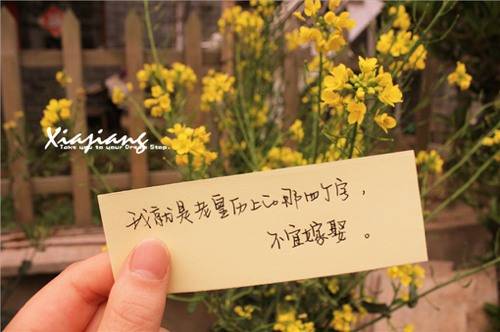 Xiajiang
Take you to your Drea Stop.
我就是老皇历上の那四个字，
不宜嫁娶。